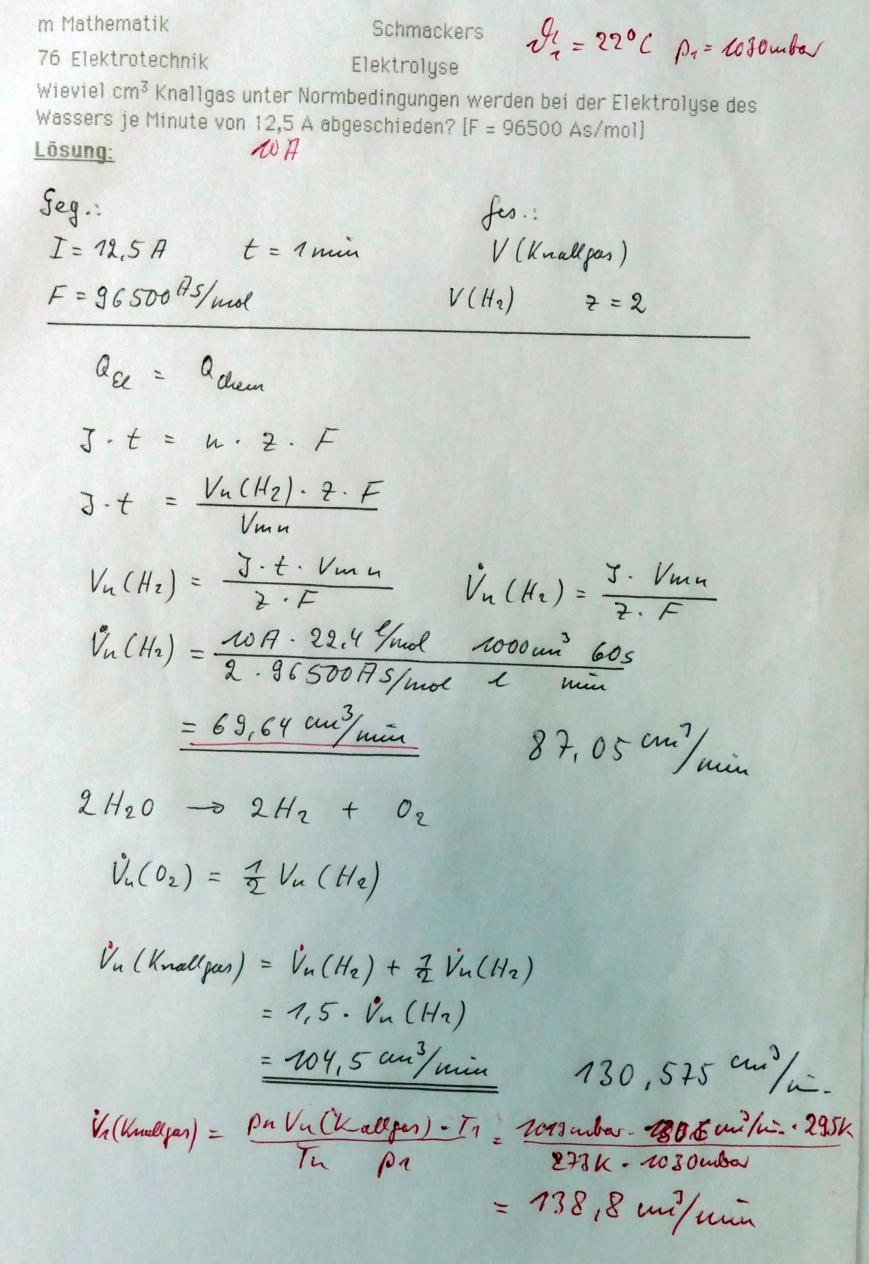 m Mathematik Schmackers ϑ₁ = 22°C p₁ = 1030mbar
76 Elektrotechnik Elektrolyse
Wieviel cm³ Knallgas unter Normbedingungen werden bei der Elektrolyse des
Wassers je Minute von 12,5 A abgeschieden? [F = 96500 As/mol]
Lösung: 10 A
Geg.: Ges.:
I = 12,5 A t = 1 min V (Knallgas)
F = 96500 As/mol V(H₂) z = 2
Q_El = Q_chem
I · t = n · z · F
I · t = Vn(H₂) · z · F / Vmn
Vn(H₂) = I · t · Vmn / z · F V̇n(H₂) = I · Vmn / z · F
V̇n(H₂) = 10A · 22,4 l/mol 1000cm³ 60s / 2 · 96500As/mol l min
= 69,64 cm³/min 87,05 cm³/min
2H₂O → 2H₂ + O₂
V̇n(O₂) = 1/2 Vn(H₂)
V̇n(Knallgas) = V̇n(H₂) + 1/2 V̇n(H₂)
= 1,5 · V̇n(H₂)
= 104,5 cm³/min 130,575 cm³/m.
V̇₁(Knallgas) = pn Vn(Kallgas) · T₁ / Tn p₁ = 1013mbar · 130,6 cm³/m. · 295K / 273K · 1030mbar
= 138,8 cm³/min